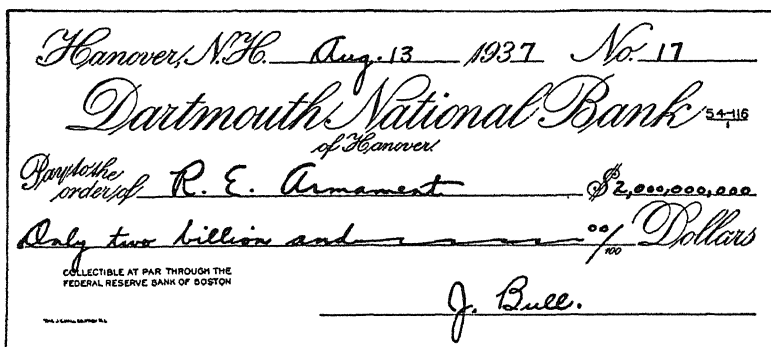 Hanover, N.H. Aug. 13 1937 No. 17
Dartmouth National Bank 54-116
1
of Hanover
Pay to the
order of R. E. Armament $2,000,000,000
Only two billion and 00/100 Dollars
COLLECTIBLE AT PAR THROUGH THE
FEDERAL RESERVE BANK OF BOSTON
J. Bull.